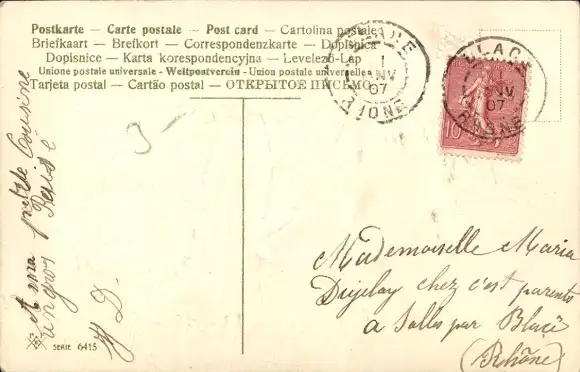 Postkarte — Carte postale — Post card — Cartolina postale
Briefkaart — Brefkort — Correspondenzkarte — Dopisnica
Dopisnice — Karta korespondencyjna — Levelező-Lap
Unione postale universale - Weltpostverein - Union postale universelle
Tarjeta postal — Cartão postal — ОТКРЫТОЕ ПИСЬМО
BLACÉ
1
JANV
07
RHÔNE
BLACÉ
JANV
07
RHÔNE
10
A ma petite Cousine
un gros Baisé
J D.
Mademoiselle Maria
chez c'est parents
a Salles par Blacé
(Rhône)
SERIE 6415